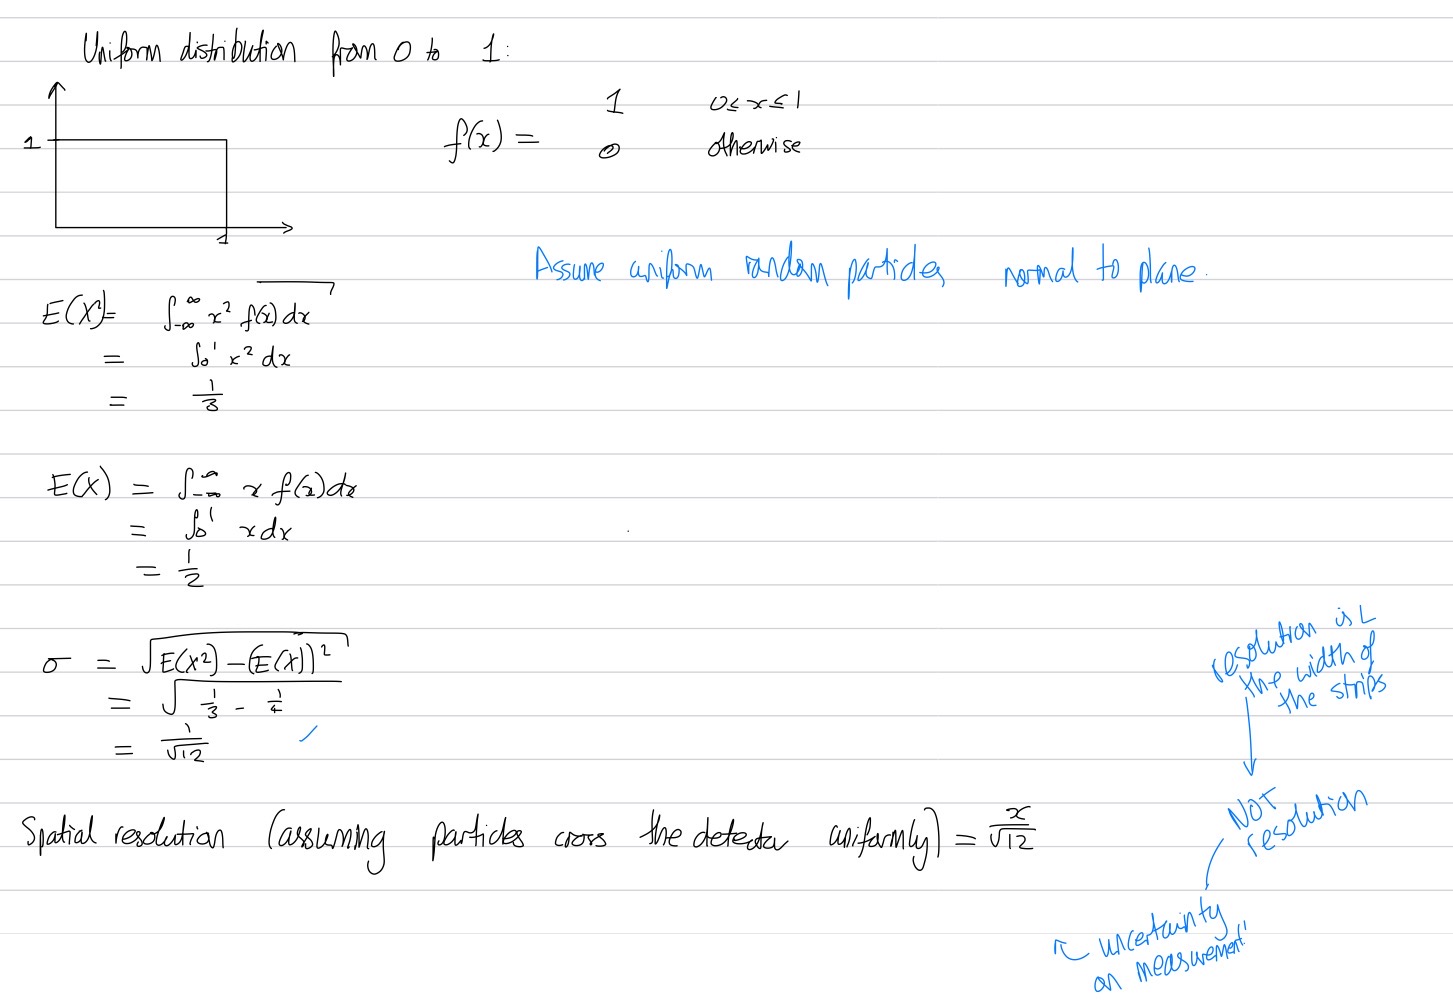 Uniform distribution from 0 to 1:
1
1
f(x) = 1 0≤x≤1
0 otherwise
Assume uniform random particles normal to plane.
E(X²)= ∫₋∞^∞ x² f(x) dx
= ∫₀¹ x² dx
= 1/3
E(X) = ∫₋∞^∞ x f(x) dx
= ∫₀¹ x dx
= 1/2
σ = √(E(X²) – (E(X))²)
= √(1/3 - 1/4)
= 1/√12 ✓
resolution is L
the width of
the strips
NOT
resolution
Spatial resolution (assuming particles cross the detector uniformly) = x/√12
uncertainty
on measurement